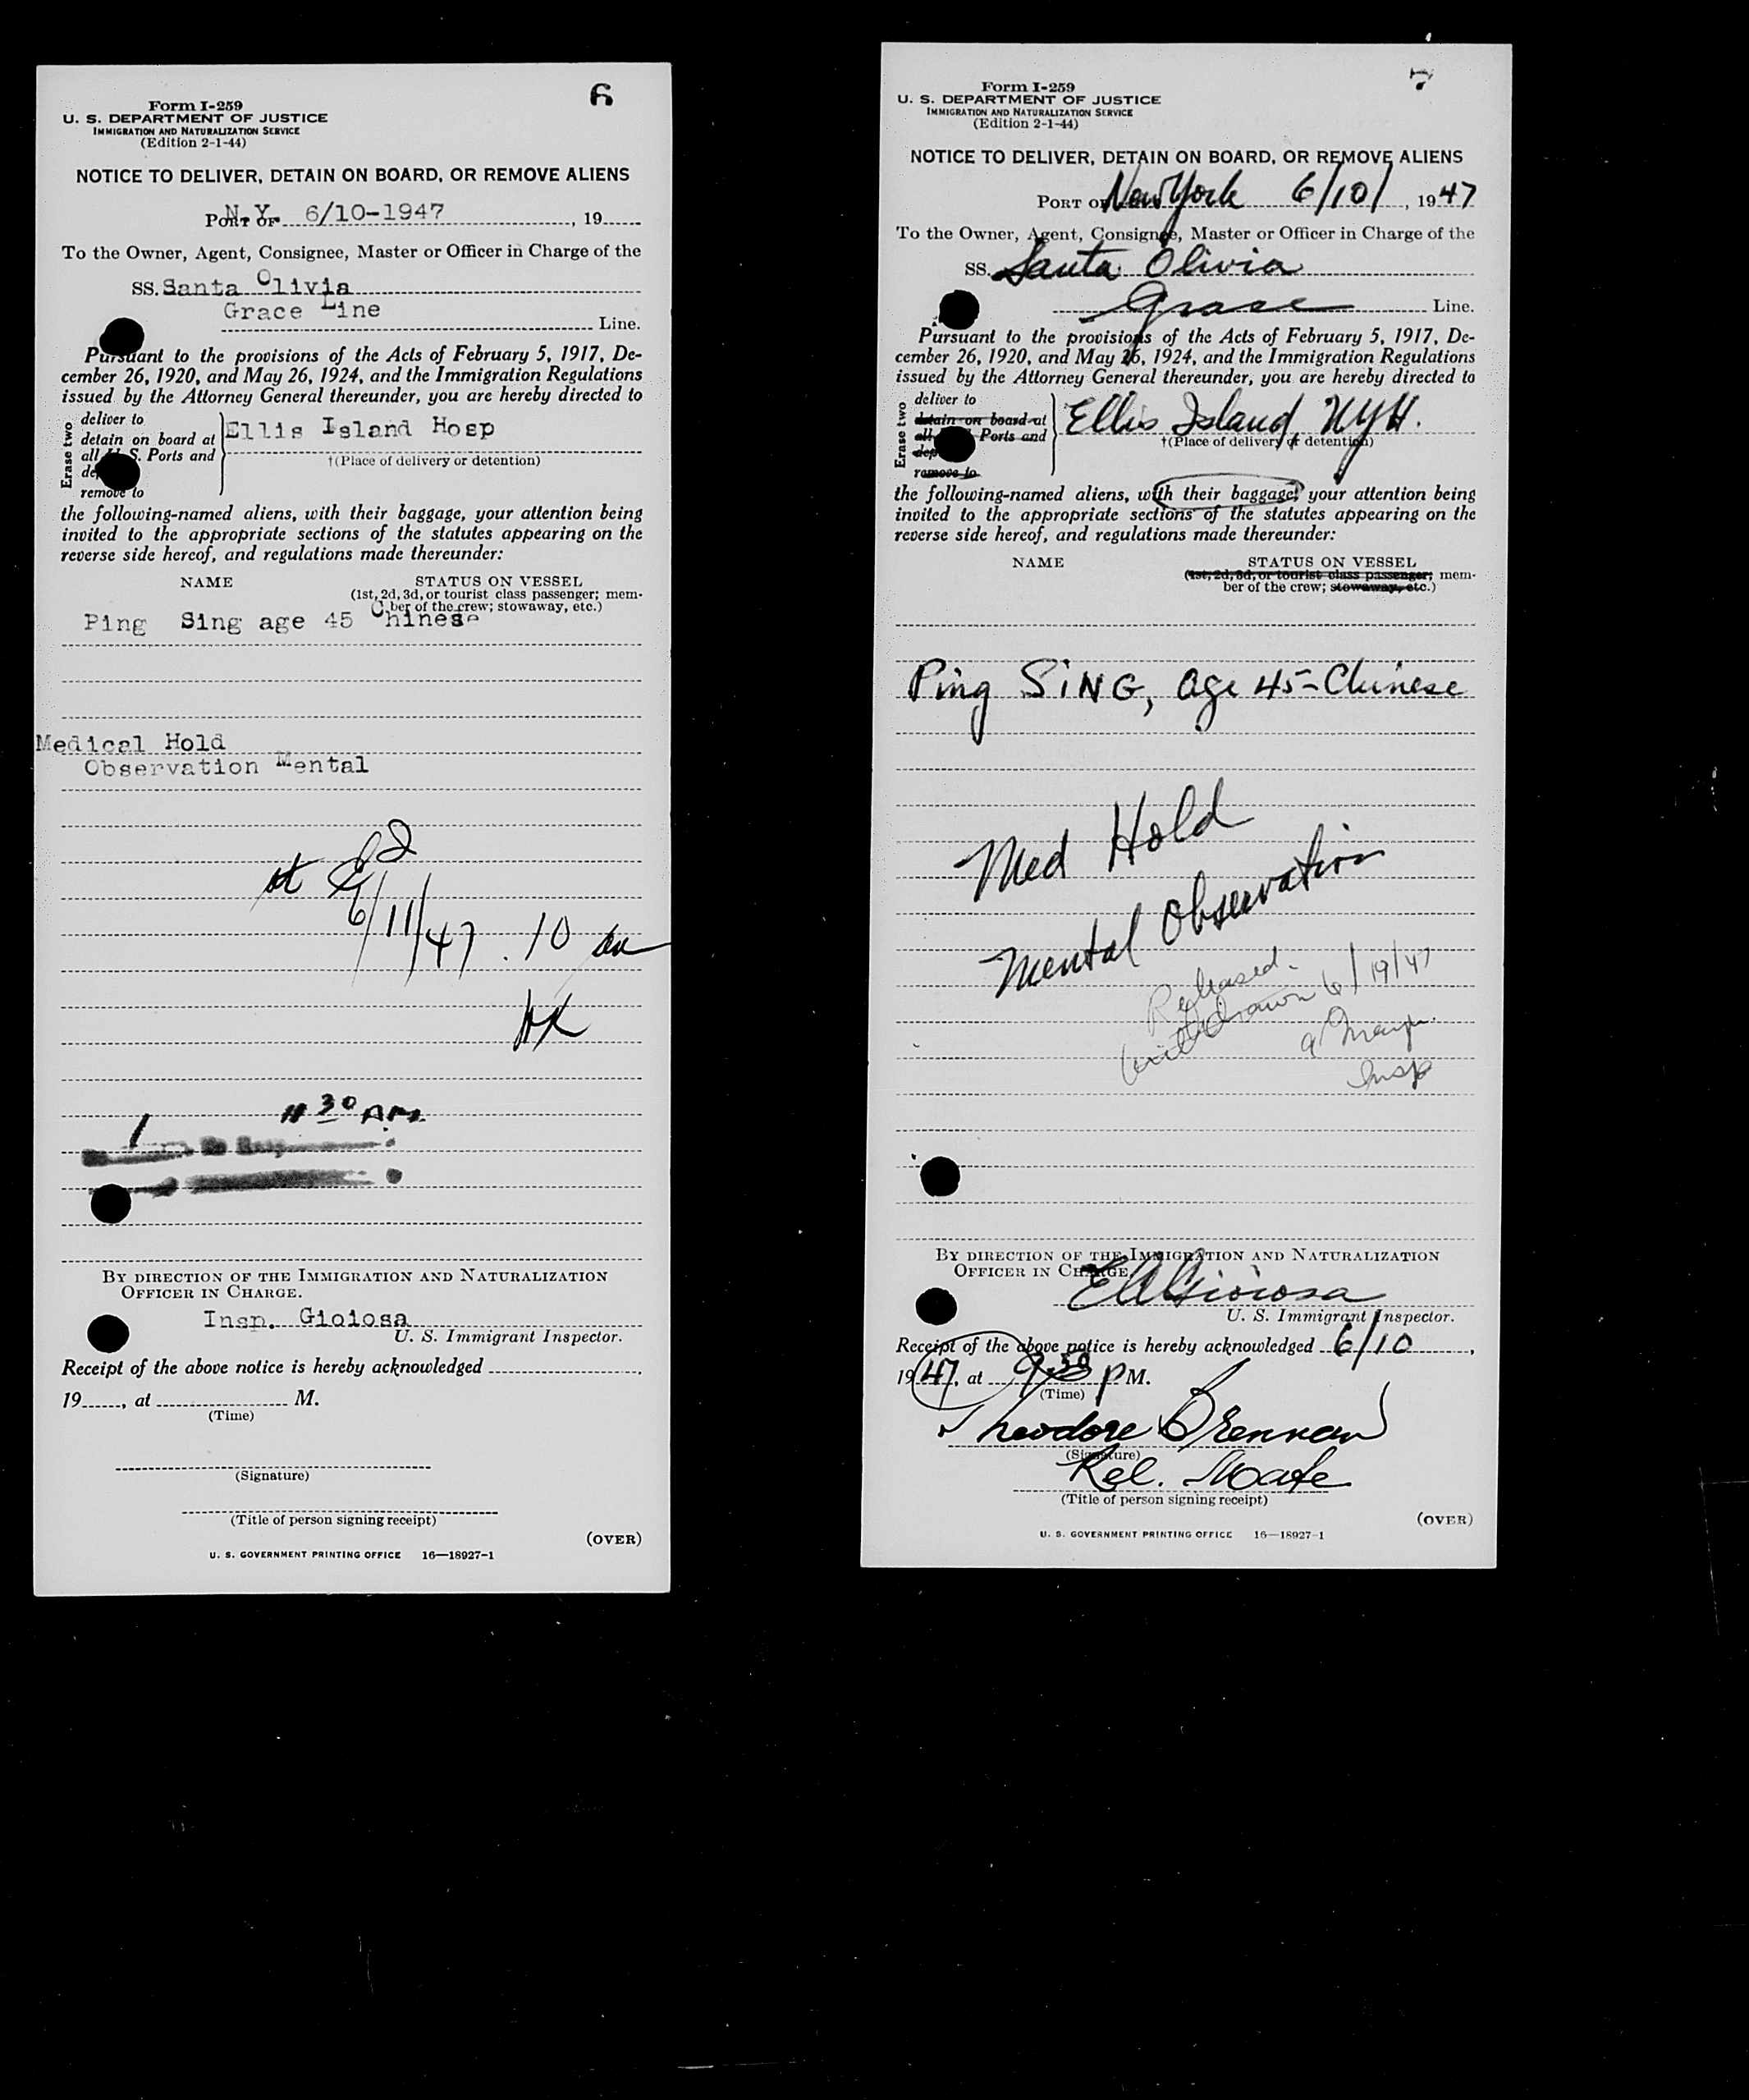 6
Form I-259
U. S. DEPARTMENT OF JUSTICE
IMMIGRATION AND NATURALIZATION SERVICE
(Edition 2-1-44)
NOTICE TO DELIVER, DETAIN ON BOARD, OR REMOVE ALIENS
PORT OF N.Y. 6/10-1947, 19
To the Owner, Agent, Consignee, Master or Officer in Charge of the
SS. Santa Olivia
Grace Line
Line.
Pursuant to the provisions of the Acts of February 5, 1917, De-
cember 26, 1920, and May 26, 1924, and the Immigration Regulations
issued by the Attorney General thereunder, you are hereby directed to
Erase two
deliver to
detain on board at
all U. S. Ports and
remove to
Ellis Island Hosp
†(Place of delivery or detention)
the following-named aliens, with their baggage, your attention being
invited to the appropriate sections of the statutes appearing on the
reverse side hereof, and regulations made thereunder:
NAME STATUS ON VESSEL
(1st, 2d, 3d, or tourist class passenger; mem-
ber of the crew; stowaway, etc.)
Ping Sing age 45 Chinese
Medical Hold
Observation Mental
6/11/47. 10
11 30 AM
1
BY DIRECTION OF THE IMMIGRATION AND NATURALIZATION
OFFICER IN CHARGE.
Insp. Gioiosa
U. S. Immigrant Inspector.
Receipt of the above notice is hereby acknowledged
19, at M.
(Time)
(Signature)
(Title of person signing receipt)
(OVER)
U. S. GOVERNMENT PRINTING OFFICE 16—18927-1
7
Form I-259
U. S. DEPARTMENT OF JUSTICE
IMMIGRATION AND NATURALIZATION SERVICE
(Edition 2-1-44)
NOTICE TO DELIVER, DETAIN ON BOARD, OR REMOVE ALIENS
PORT OF New York 6/10/, 1947
To the Owner, Agent, Consignee, Master or Officer in Charge of the
SS. Santa Olivia
Grace Line.
Pursuant to the provisions of the Acts of February 5, 1917, De-
cember 26, 1920, and May 26, 1924, and the Immigration Regulations
issued by the Attorney General thereunder, you are hereby directed to
Erase two
deliver to
detain on board at
all Ports and
remove to
Ellis Island, NYH.
†(Place of delivery or detention)
the following-named aliens, with their baggage, your attention being
invited to the appropriate sections of the statutes appearing on the
reverse side hereof, and regulations made thereunder:
NAME STATUS ON VESSEL
(1st, 2d, 3d, or tourist class passenger; mem-
ber of the crew; stowaway, etc.)
Ping SING, age 45-Chinese
Med Hold
Mental Observation
Released.
withdrawn 6/19/47
Insp
BY DIRECTION OF THE IMMIGRATION AND NATURALIZATION
OFFICER IN CHARGE.
EA Gioiosa
U. S. Immigrant Inspector.
Receipt of the above notice is hereby acknowledged 6/10,
1947, at 9:30 P M.
(Time)
Theodore Brennan
(Signature)
Rel. Mate
(Title of person signing receipt)
(OVER)
U. S. GOVERNMENT PRINTING OFFICE 16—18927-1